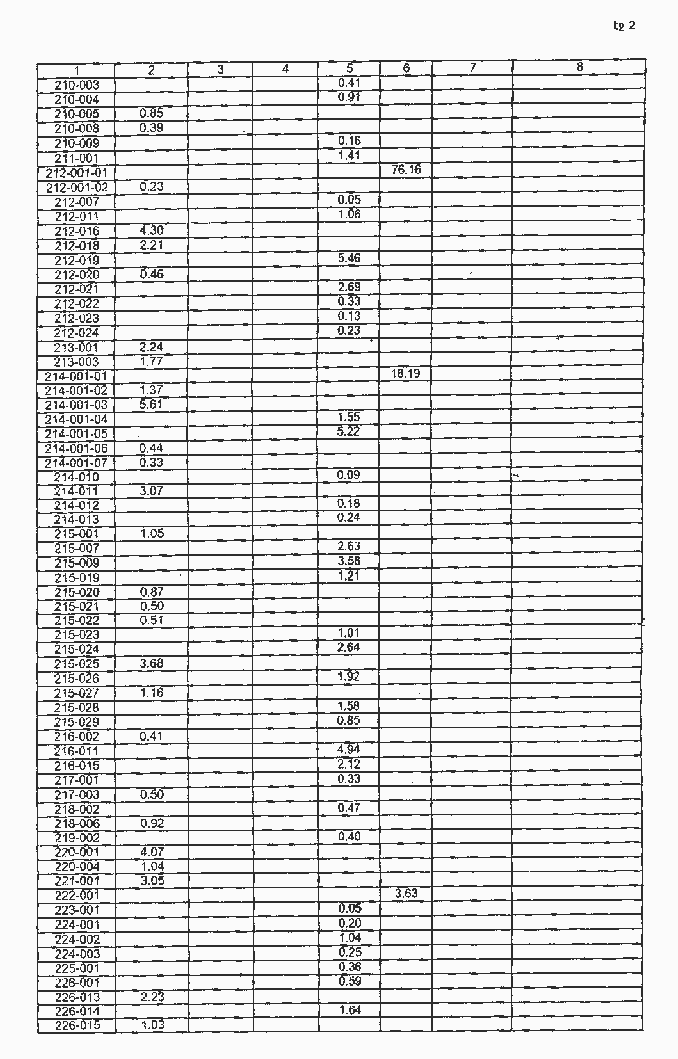 tp 2
1 2 3 4 5 6 7 8
210-003 0.41
210-004 0.91
210-005 0.85
210-008 0.39
210-009 0.16
211-001 1.41
212-001-01 76.16
212-001-02 0.23
212-007 0.05
212-011 1.06
212-016 4.30
212-018 2.21
212-019 5.46
212-020 0.46
212-021 2.69
212-022 0.33
212-023 0.13
212-024 0.23
213-001 2.24
213-003 1.77
214-001-01 18.19
214-001-02 1.37
214-001-03 5.61
214-001-04 1.55
214-001-05 5.22
214-001-06 0.44
214-001-07 0.33
214-010 0.09
214-011 3.07
214-012 0.18
214-013 0.24
215-001 1.05
215-007 2.63
215-009 3.58
215-019 1.21
215-020 0.87
215-021 0.50
215-022 0.51
215-023 1.01
215-024 2.64
215-025 3.68
215-026 1.92
215-027 1.16
215-028 1.58
215-029 0.85
216-002 0.41
216-011 4.94
216-015 2.12
217-001 0.33
217-003 0.50
218-002 0.47
218-006 0.92
219-002 0.40
220-001 4.07
220-004 1.04
221-001 3.05
222-001 3.63
223-001 0.05
224-001 0.20
224-002 1.04
224-003 0.25
225-001 0.36
226-001 0.59
226-013 2.23
226-014 1.64
226-015 1.03